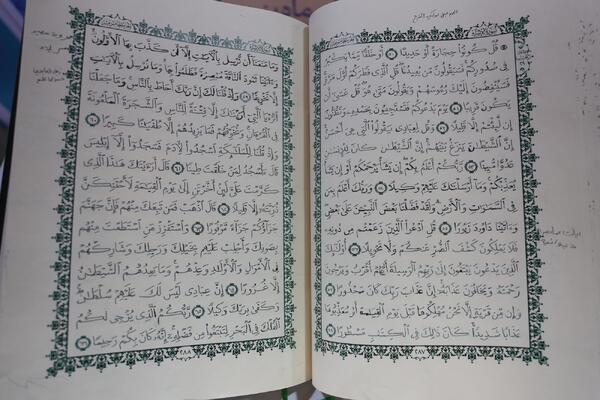 ۞ قُلْ كُونُوا۟ حِجَارَةً أَوْ حَدِيدًا ٥٠ أَوْ خَلْقًا مِّمَّا يَكْبُرُ
فِى صُدُورِكُمْ فَسَيَقُولُونَ مَن يُعِيدُنَا قُلِ ٱلَّذِى فَطَرَكُمْ أَوَّلَ مَرَّةٍ
فَسَيُنْغِضُونَ إِلَيْكَ رُءُوسَهُمْ وَيَقُولُونَ مَتَىٰ هُوَ قُلْ عَسَىٰٓ أَن
يَكُونَ قَرِيبًا ٥١ يَوْمَ يَدْعُوكُمْ فَتَسْتَجِيبُونَ بِحَمْدِهِۦ وَتَظُنُّونَ
إِن لَّبِثْتُمْ إِلَّا قَلِيلًا ٥٢ وَقُل لِّعِبَادِى يَقُولُوا۟ ٱلَّتِى هِىَ أَحْسَنُ
إِنَّ ٱلشَّيْطَٰنَ يَنزَغُ بَيْنَهُمْ إِنَّ ٱلشَّيْطَٰنَ كَانَ لِلْإِنسَٰنِ
عَدُوًّا مُّبِينًا ٥٣ رَّبُّكُمْ أَعْلَمُ بِكُمْ إِن يَشَأْ يَرْحَمْكُمْ أَوْ إِن يَشَأْ
يُعَذِّبْكُمْ وَمَآ أَرْسَلْنَٰكَ عَلَيْهِمْ وَكِيلًا ٥٤ وَرَبُّكَ أَعْلَمُ بِمَن
فِى ٱلسَّمَٰوَٰتِ وَٱلْأَرْضِ وَلَقَدْ فَضَّلْنَا بَعْضَ ٱلنَّبِيِّۦنَ عَلَىٰ بَعْضٍ
وَءَاتَيْنَا دَاوُۥدَ زَبُورًا ٥٥ قُلِ ٱدْعُوا۟ ٱلَّذِينَ زَعَمْتُم مِّن دُونِهِۦ
فَلَا يَمْلِكُونَ كَشْفَ ٱلضُّرِّ عَنكُمْ وَلَا تَحْوِيلًا ٥٦ أُو۟لَٰٓئِكَ
ٱلَّذِينَ يَدْعُونَ يَبْتَغُونَ إِلَىٰ رَبِّهِمُ ٱلْوَسِيلَةَ أَيُّهُمْ أَقْرَبُ وَيَرْجُونَ
رَحْمَتَهُۥ وَيَخَافُونَ عَذَابَهُۥٓ إِنَّ عَذَابَ رَبِّكَ كَانَ مَحْذُورًا ٥٧
وَإِن مِّن قَرْيَةٍ إِلَّا نَحْنُ مُهْلِكُوهَا قَبْلَ يَوْمِ ٱلْقِيَٰمَةِ أَوْ مُعَذِّبُوهَا
عَذَابًا شَدِيدًا كَانَ ذَٰلِكَ فِى ٱلْكِتَٰبِ مَسْطُورًا ٥٨
٢٨٧
وَمَا مَنَعَنَآ أَن نُّرْسِلَ بِٱلْءَايَٰتِ إِلَّآ أَن كَذَّبَ بِهَا ٱلْأَوَّلُونَ
وَءَاتَيْنَا ثَمُودَ ٱلنَّاقَةَ مُبْصِرَةً فَظَلَمُوا۟ بِهَا وَمَا نُرْسِلُ بِٱلْءَايَٰتِ
إِلَّا تَخْوِيفًا ٥٩ وَإِذْ قُلْنَا لَكَ إِنَّ رَبَّكَ أَحَاطَ بِٱلنَّاسِ وَمَا جَعَلْنَا
ٱلرُّءْيَا ٱلَّتِىٓ أَرَيْنَٰكَ إِلَّا فِتْنَةً لِّلنَّاسِ وَٱلشَّجَرَةَ ٱلْمَلْعُونَةَ
فِى ٱلْقُرْءَانِ وَنُخَوِّفُهُمْ فَمَا يَزِيدُهُمْ إِلَّا طُغْيَٰنًا كَبِيرًا ٦٠
وَإِذْ قُلْنَا لِلْمَلَٰٓئِكَةِ ٱسْجُدُوا۟ لِءَادَمَ فَسَجَدُوٓا۟ إِلَّآ إِبْلِيسَ
قَالَ ءَأَسْجُدُ لِمَنْ خَلَقْتَ طِينًا ٦١ قَالَ أَرَءَيْتَكَ هَٰذَا ٱلَّذِى
كَرَّمْتَ عَلَىَّ لَئِنْ أَخَّرْتَنِ إِلَىٰ يَوْمِ ٱلْقِيَٰمَةِ لَأَحْتَنِكَنَّ
ذُرِّيَّتَهُۥٓ إِلَّا قَلِيلًا ٦٢ قَالَ ٱذْهَبْ فَمَن تَبِعَكَ مِنْهُمْ فَإِنَّ جَهَنَّمَ
جَزَآؤُكُمْ جَزَآءً مَّوْفُورًا ٦٣ وَٱسْتَفْزِزْ مَنِ ٱسْتَطَعْتَ مِنْهُم
بِصَوْتِكَ وَأَجْلِبْ عَلَيْهِم بِخَيْلِكَ وَرَجِلِكَ وَشَارِكْهُمْ
فِى ٱلْأَمْوَٰلِ وَٱلْأَوْلَٰدِ وَعِدْهُمْ وَمَا يَعِدُهُمُ ٱلشَّيْطَٰنُ
إِلَّا غُرُورًا ٦٤ إِنَّ عِبَادِى لَيْسَ لَكَ عَلَيْهِمْ سُلْطَٰنٌ
وَكَفَىٰ بِرَبِّكَ وَكِيلًا ٦٥ رَّبُّكُمُ ٱلَّذِى يُزْجِى لَكُمُ
ٱلْفُلْكَ فِى ٱلْبَحْرِ لِتَبْتَغُوا۟ مِن فَضْلِهِۦٓ إِنَّهُۥ كَانَ بِكُمْ رَحِيمًا ٦٦
٢٨٨